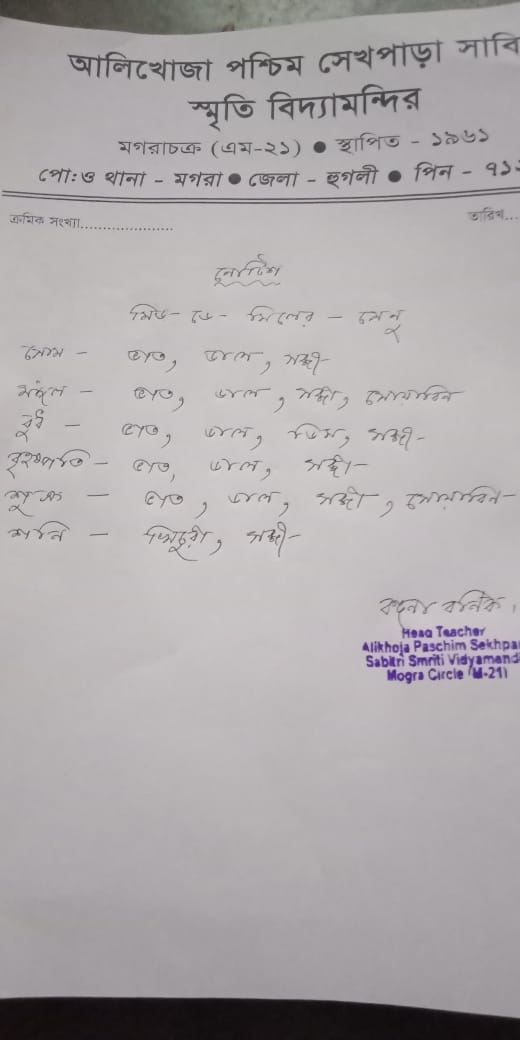 আলিখোজা পশ্চিম সেখপাড়া সাবি
স্মৃতি বিদ্যামন্দির
মগরাচক্র (এম-২১) ● স্থাপিত - ১৯৬১
পোঃ ও থানা - মগরা ● জেলা - হুগলী ● পিন - ৭১২
ক্রমিক সংখ্যা.................... তারিখ...
নোটিশ
মিড - ডে - মিলের - মেনু
সোম - ভাত, ডাল, সব্জী-
মঙ্গল - ভাত, ডাল, সব্জী, সোয়াবিন
বুধ - ভাত, ডাল, ডিম, সব্জী-
বৃহস্পতি - ভাত, ডাল, সব্জী-
শুক্র - ভাত, ডাল, সব্জী, সোয়াবিন-
শনি - খিচুরী, সব্জী-
বনিক।
Head Teacher
Alikhoja Paschim Sekhpa
Sabitri Smriti Vidyamand
Mogra Circle (M-21)